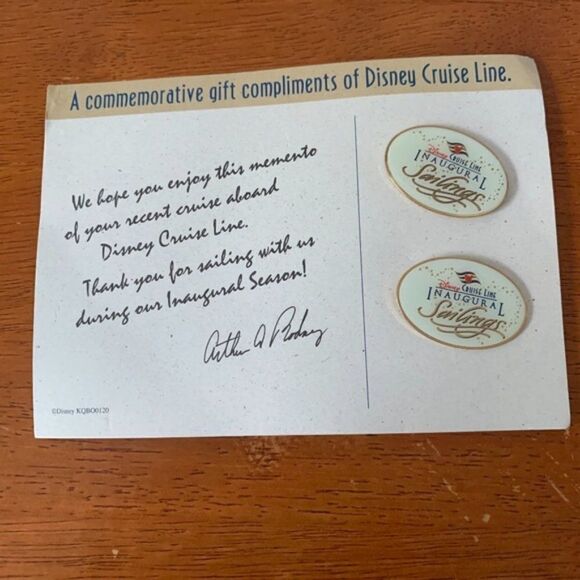 A commemorative gift compliments of Disney Cruise Line.
We hope you enjoy this memento
of your recent cruise aboard
Disney Cruise Line.
Thank you for sailing with us
during our Inaugural Season!
Arthur A Rodney
©Disney KQBO0120
Disney CRUISE LINE
INAUGURAL
Sailings
Disney CRUISE LINE
INAUGURAL
Sailings